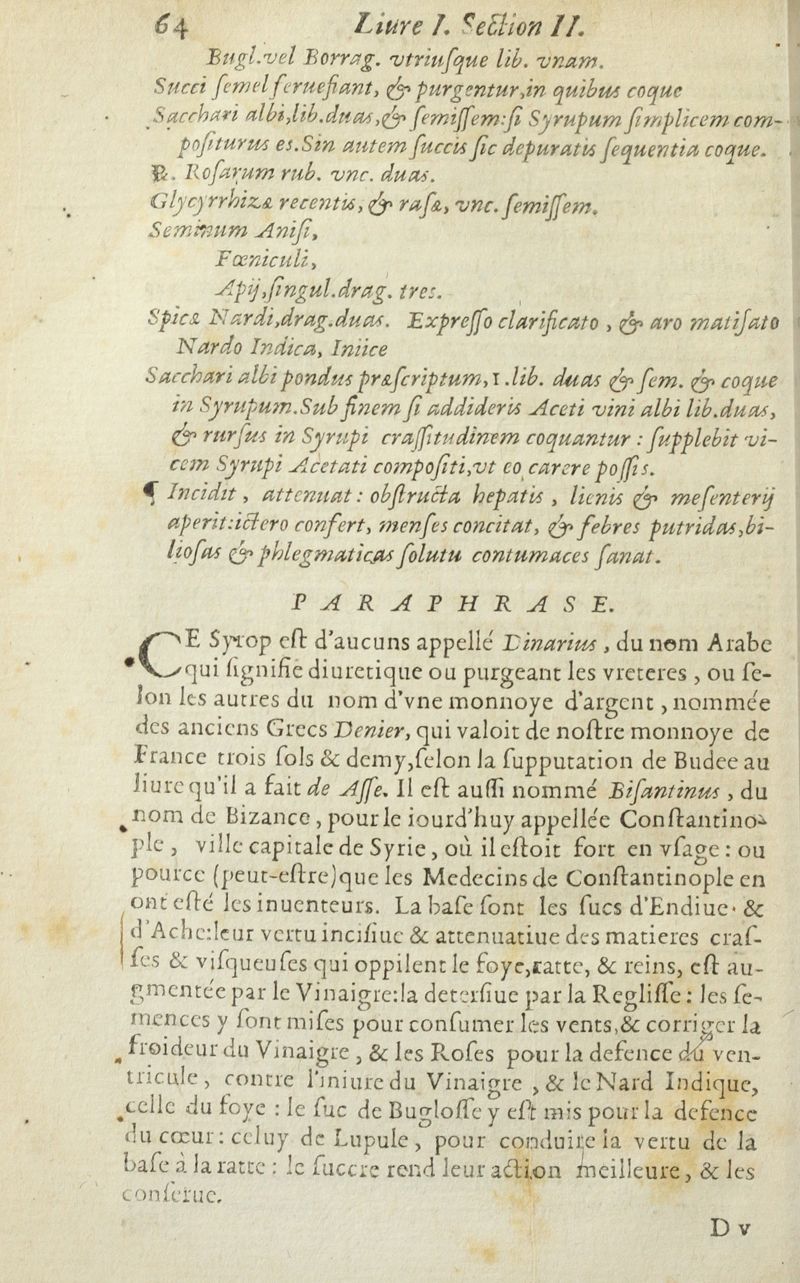 64 Liure I. Section II.
Bugl.vel Borrag. vtriuſque lib. vnam.
Succi ſemel feruefiant, & purgentur,in quibus coque
Sacchari albi,lib.duas,& ſemiſſem:ſi Syrupum ſimplicem com-
poſiturus es.Sin autem ſuccis ſic depuratis ſequentia coque.
℞. Roſarum rub. vnc. duas.
Glycyrrhizæ recentis, & raſæ, vnc. ſemiſſem.
Seminum Aniſi,
Fœniculi,
Apij,ſingul.drag. tres.
Spicæ Nardi,drag.duas. Expreſſo clarificato , & aro matiſato
Nardo Indica, Iniice
Sacchari albi pondus præſcriptum,ɪ.lib. duas & ſem. & coque
in Syrupum.Sub finem ſi addideris Aceti vini albi lib.duas,
& rurſus in Syrupi craſſitudinem coquantur : ſupplebit vi-
cem Syrupi Acetati compoſiti,vt eo carere poſſis.
¶ Incidit , attenuat : obſtructa hepatis , lienis & meſenterij
aperit:ictero confert, menſes concitat, & febres putridas,bi-
lioſas & phlegmaticas ſolutu contumaces ſanat.
PARAPHRASE.
CE Syrop eſt d'aucuns appellé Dinarius , du nom Arabe
qui ſignifie diuretique ou purgeant les vreteres , ou ſe-
lon les autres du nom d'vne monnoye d'argent , nommée
des anciens Grecs Denier, qui valoit de noſtre monnoye de
France trois ſols & demy,ſelon la ſupputation de Budee au
liure qu'il a fait de Aſſe. Il eſt auſſi nommé Biſantinus , du
nom de Bizance , pour le iourd'huy appellée Conſtantino-
ple , ville capitale de Syrie, où il eſtoit fort en vſage : ou
pource (peut-eſtre)que les Medecins de Conſtantinople en
ont eſté les inuenteurs. La baſe ſont les ſucs d'Endiue. &
d'Ache:leur vertu inciſiue & attenuatiue des matieres craſ-
ſes & viſqueuſes qui oppilent le foye,ratte, & reins, eſt au-
gmentée par le Vinaigre:la deterſiue par la Regliſſe : les ſe-
mences y ſont miſes pour conſumer les vents,& corriger la
froideur du Vinaigre , & les Roſes pour la defence du ven-
tricule, contre l'iniure du Vinaigre , & le Nard Indique,
celle du foye : le ſuc de Bugloſſe y eſt mis pour la defence
du cœur: celuy de Lupule, pour conduire la vertu de la
baſe à la ratte : le ſuccre rend leur action meilleure, & les
conſerue.
D v